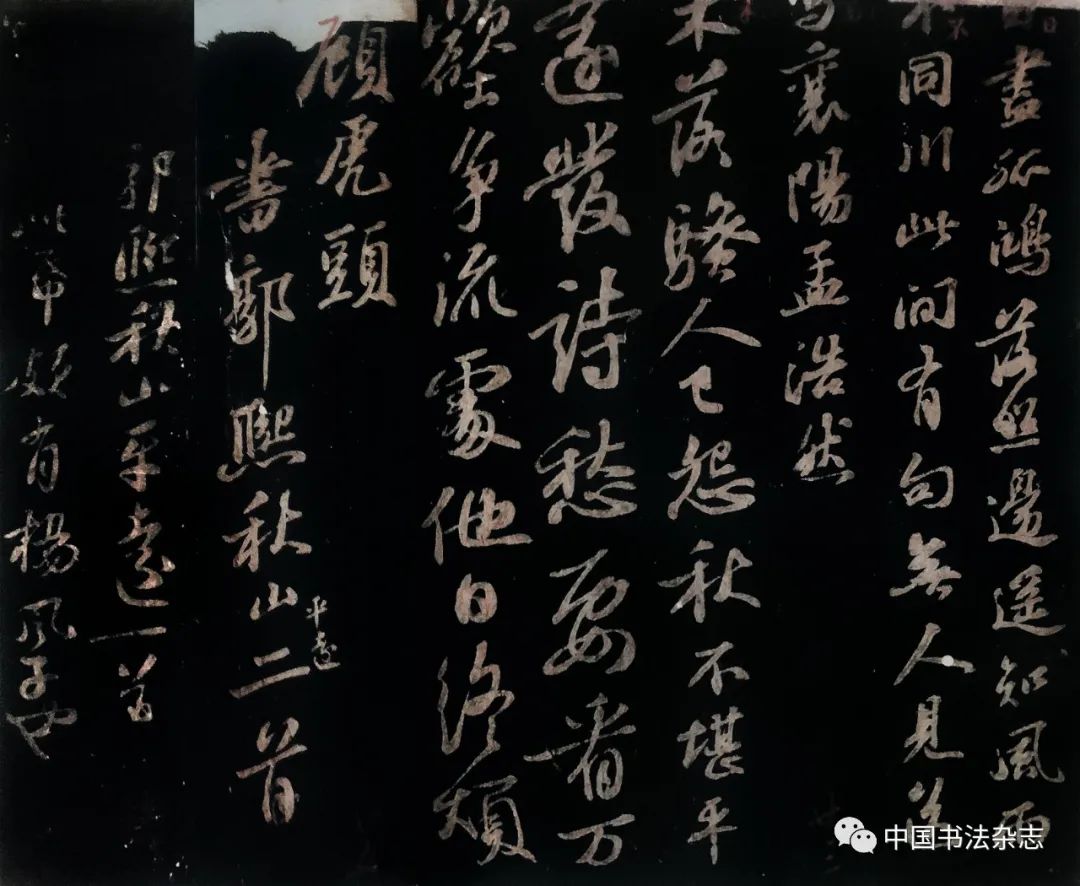 盡孤鴻落照邊遥知風雨
不同川此間有句無人見送
與襄陽孟浩然
木落騷人已怨秋不堪平
遠發詩愁要看万
壑争流處他日終煩
顧虎頭
書郭熙秋山平遠二首
郭熙秋山平遠一首
此帋頗肖楊風子也
中国书法杂志